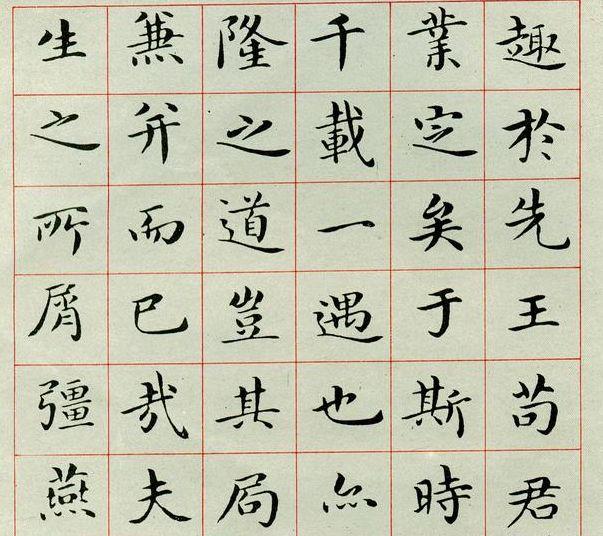 趣於先王苟君
業定矣于斯時
千載一遇也亦
隆之道豈其局
兼并而已哉夫
生之所屑彊燕